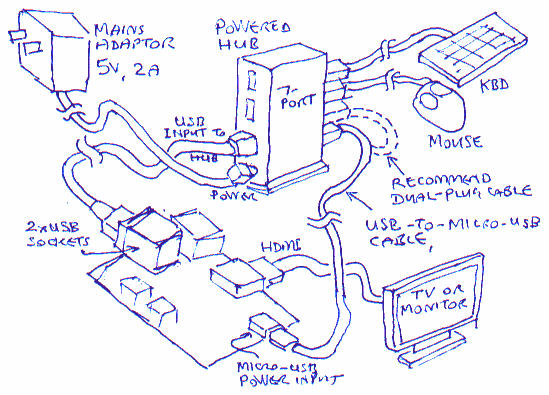 MAINS
ADAPTOR
5V, 2A
POWERED
HUB
7-
PORT
KBD
MOUSE
USB
INPUT TO
HUB
POWER
RECOMMEND
DUAL-PLUG CABLE
USB-TO-MICRO-USB
CABLE,
2xUSB
SOCKETS
HDMI
TV OR
MONITOR
MICRO-USB
POWER INPUT